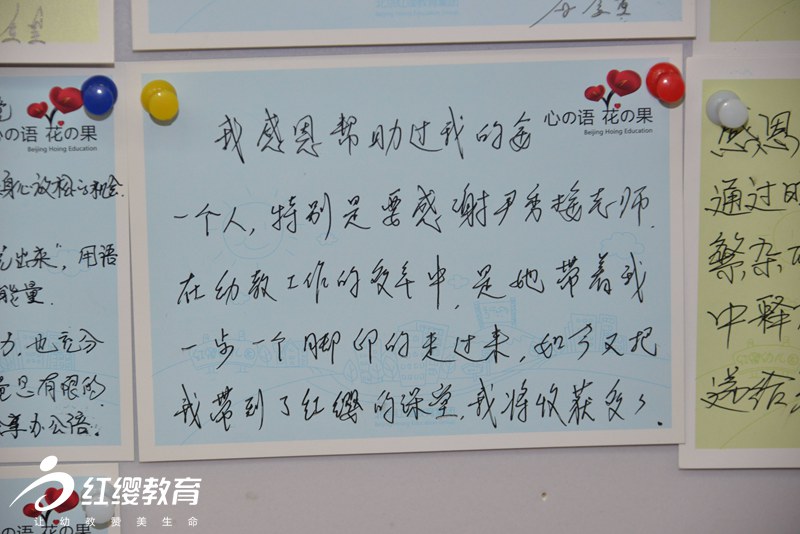 心の语 花の果
Beijing Hoing Education
我感恩帮助过我的每
一个人,特别是要感谢尹秀接老师.
在幼教工作的多年中,是她带着我
一步一个脚印的走过来,如今又把
我带到了红缨的课堂,我将收获多多.
心の语 花の果
Beijing Hoing Education
身心放松的机会.
出来”,用语
能量.
也充分
有限的
享办公语.
感恩
通过
繁杂
中释
送给
红缨教育
让幼教赞美生命
心の语 花の果